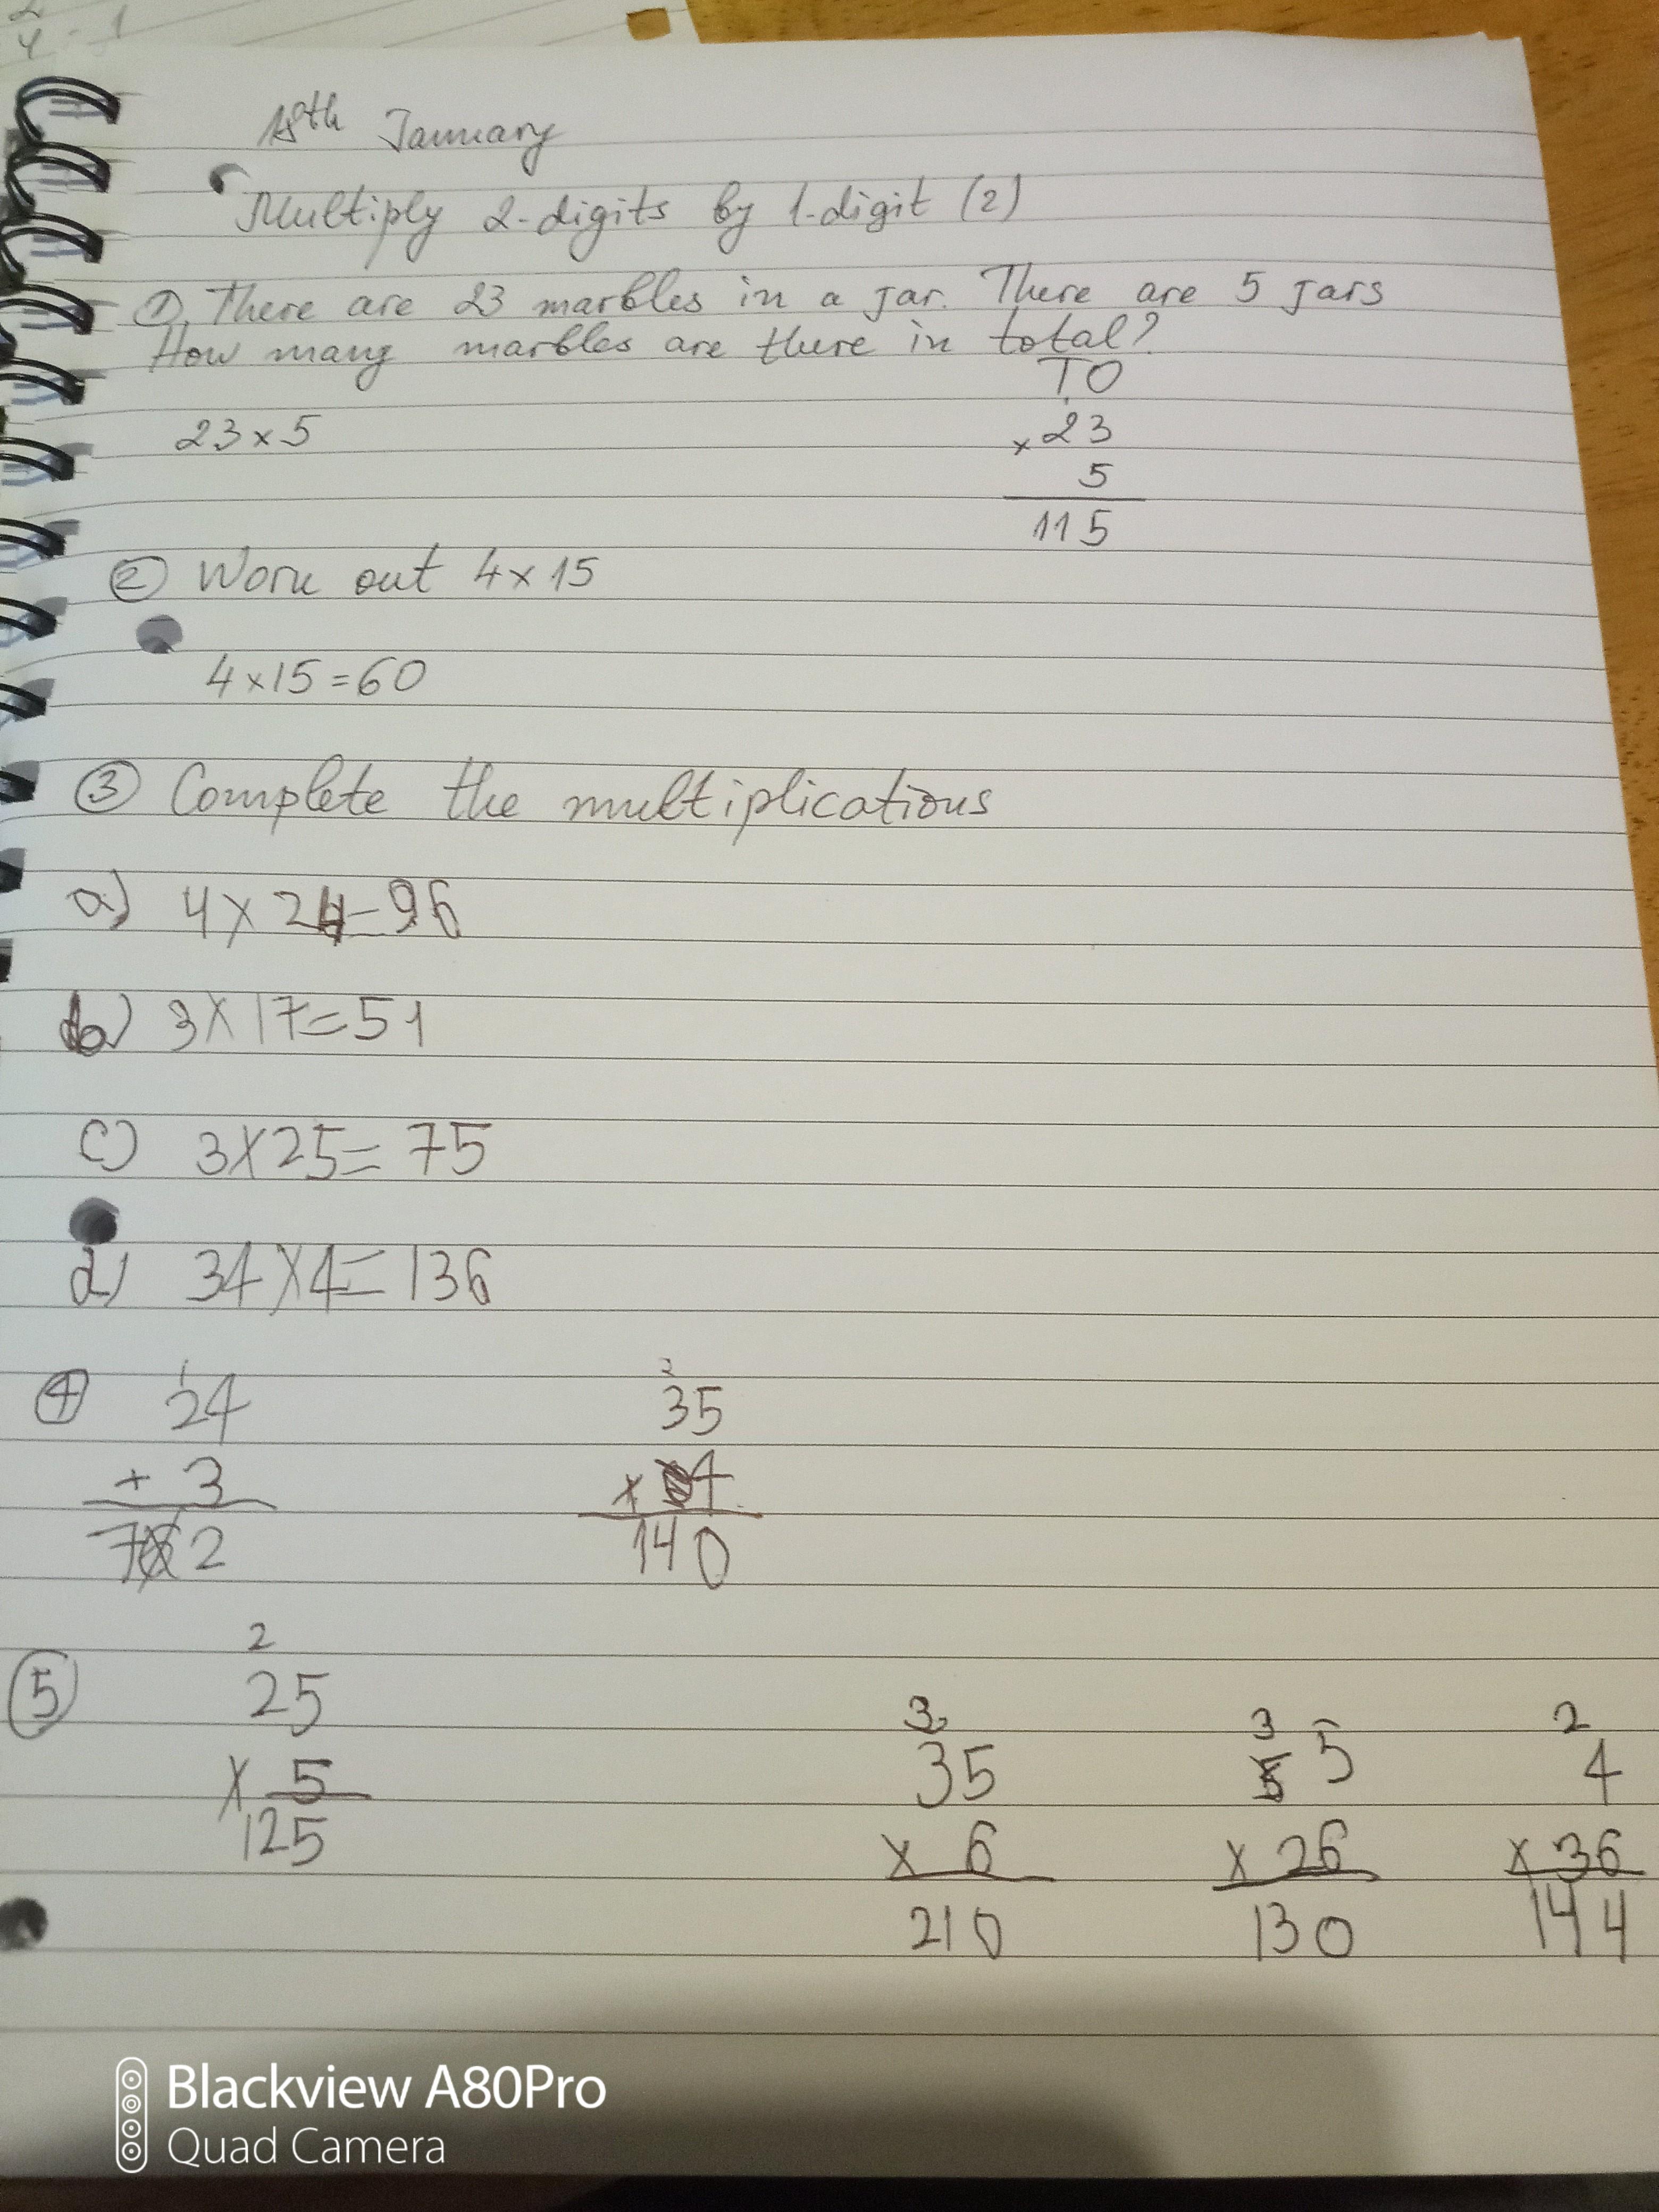 18th January
Multiply 2-digits by 1-digit (2)
① There are 23 marbles in a jar. There are 5 jars
How many marbles are there in total?
TO
23 x 5
x 23
5
115
② Work out 4 x 15
4 x 15 = 60
③ Complete the multiplications
a) 4 x 24 = 96
b) 3 x 17 = 51
c) 3 x 25 = 75
d) 34 x 4 = 136
④ 1
24
+ 3
72
2
35
x 4
140
⑤ 2
25
x 5
125
3
35
x 6
210
3
5
x 26
130
2
4
x 36
144
Blackview A80Pro
Quad Camera